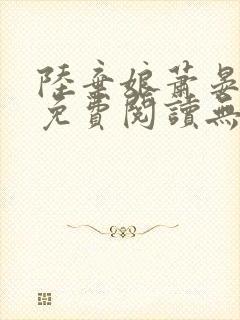 陸棄娘蕭晏
免費閱讀無